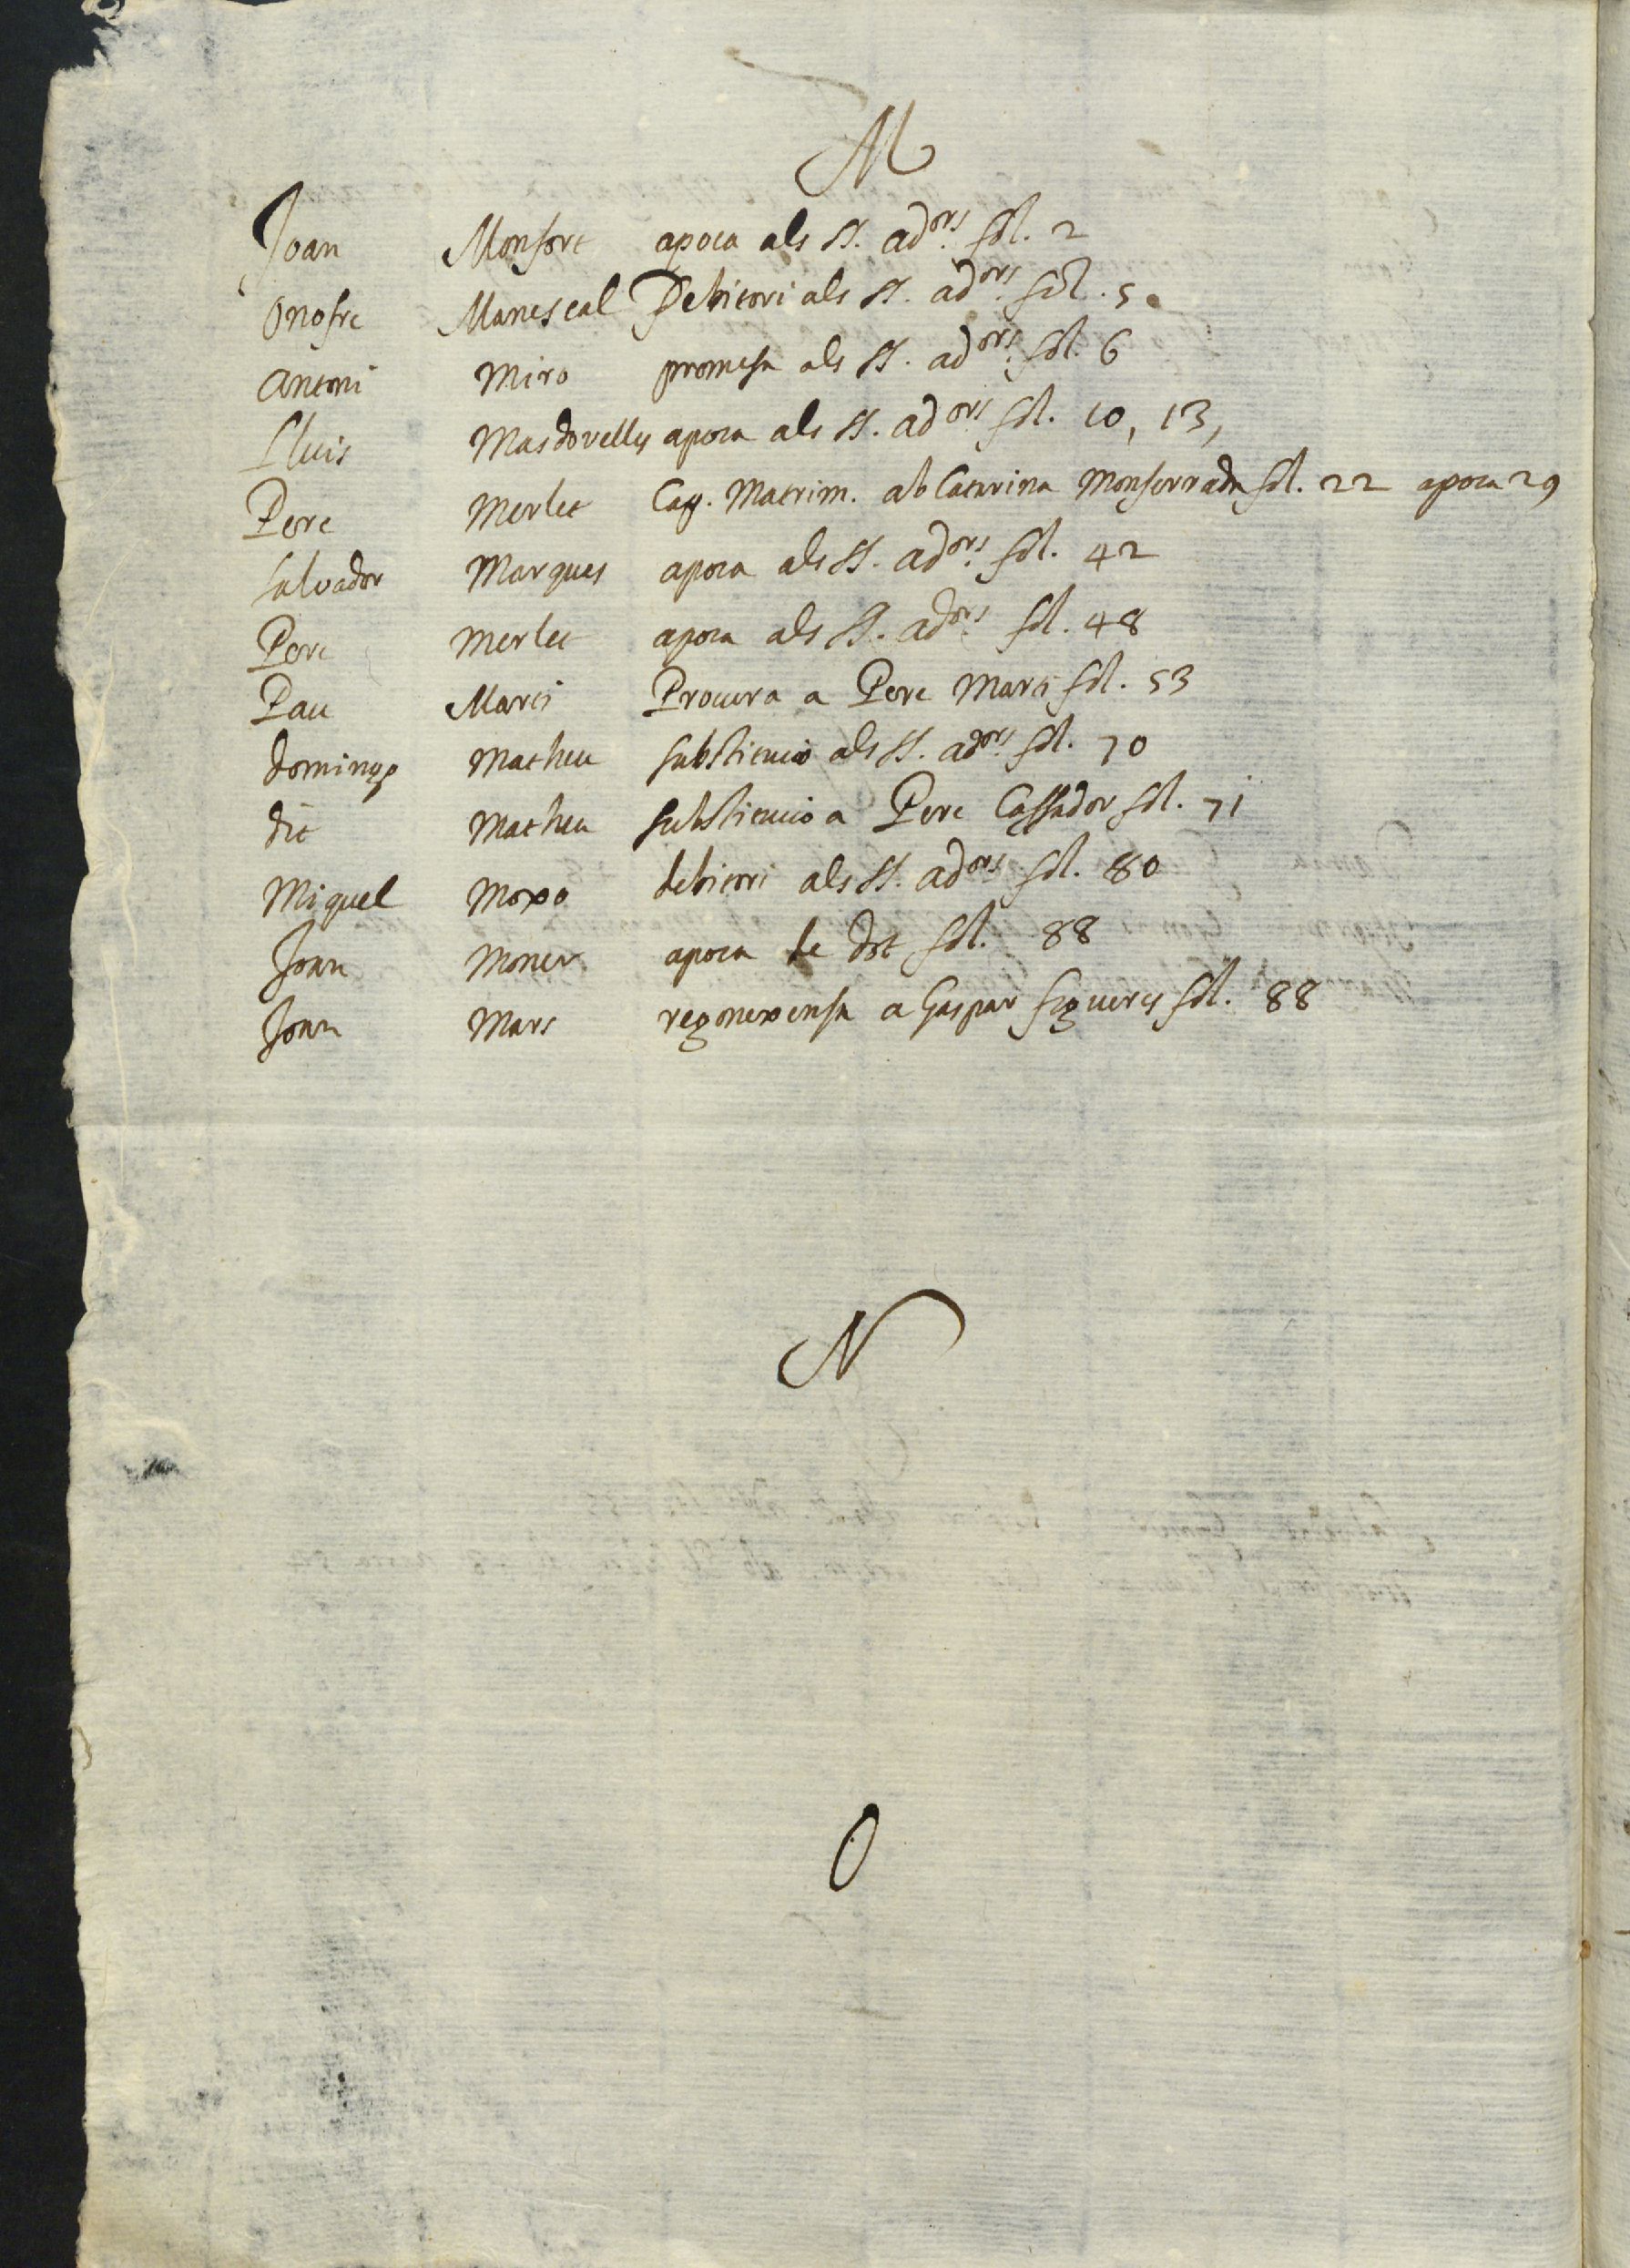 M
Joan Monfort apoca als SS. ad.ors fol. 2
Onofre Manescal Debitori als SS. ad.ors fol. 5
Antoni Miro promesa als SS. ad.ors fol. 6
Lluis Masdovellys apoca als SS. ad.ors fol. 10, 13,
Pere Merlet Cap. Matrim. ab Catarina Monserrada fol. 22 apoca 29
salvador Marques apoca als SS. ad.ors fol. 42
Pere Merlet apoca als SS. ad.ors fol. 48
Pau Marti Procura a Pere Marti fol. 53
domingo Matheu substitucio als SS. ad.ors fol. 70
dit Matheu substitucio a Pere Cassador fol. 71
Miquel Moxo debitori als SS. ad.ors fol. 80
Joan Moner apoca de dot fol. 88
Joan Mars regonexensa a Gaspar figuerys fol. 88
N
O